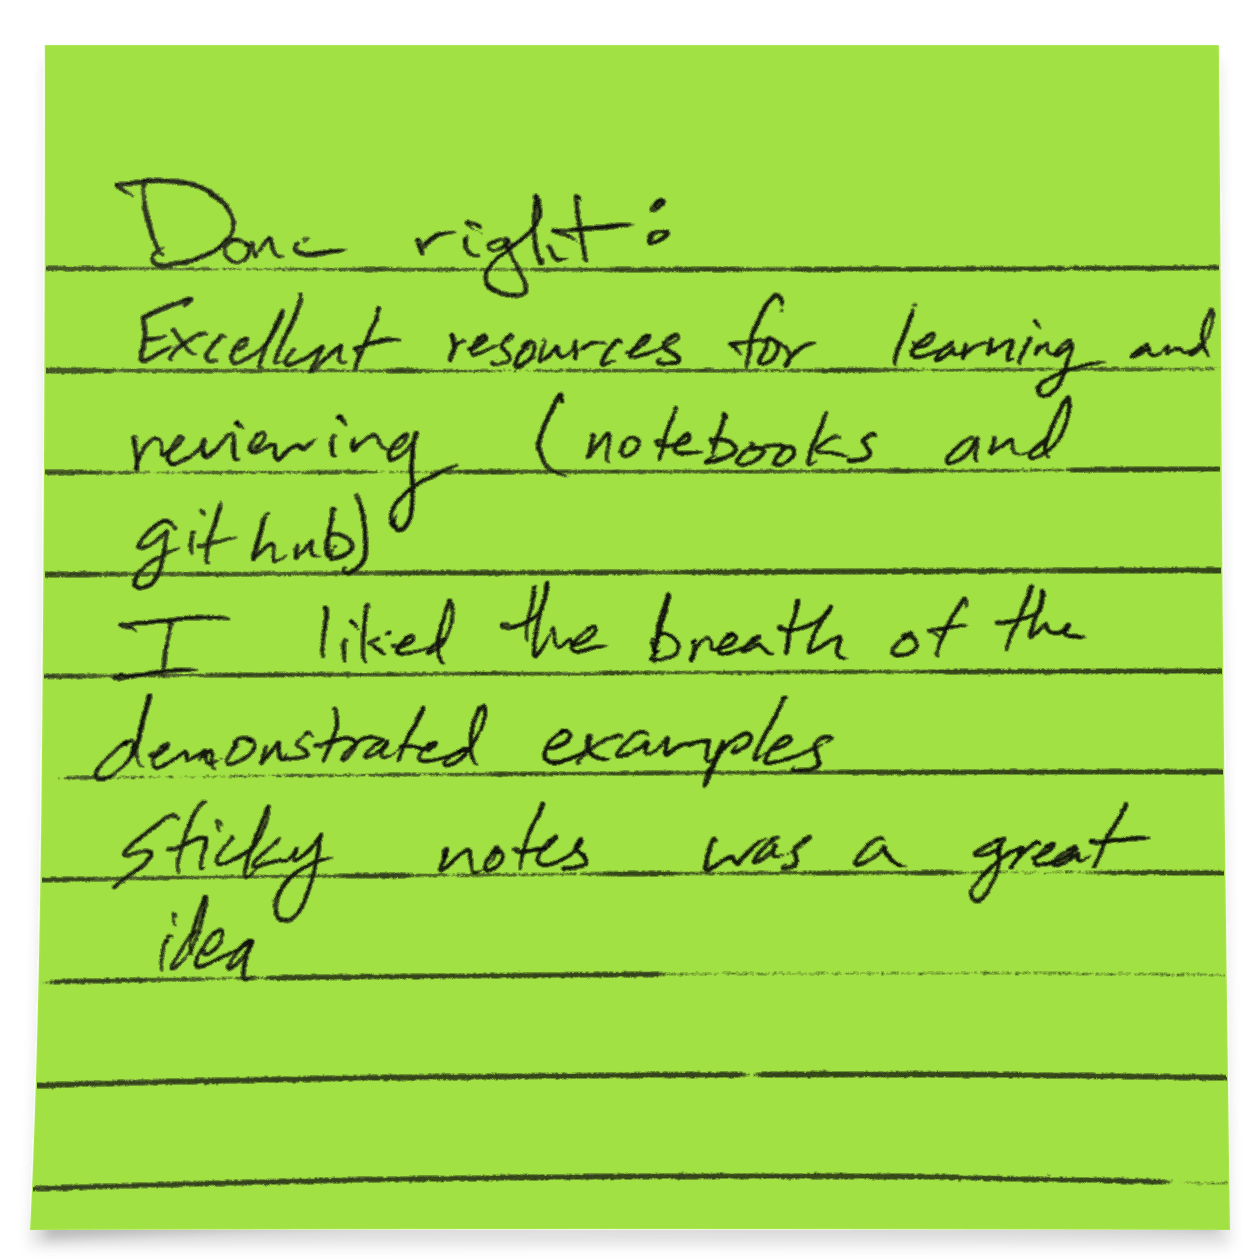 Done right:
Excellent resources for learning and
reviewing (notebooks and
github)
I liked the breath of the
demonstrated examples
sticky notes was a great
idea